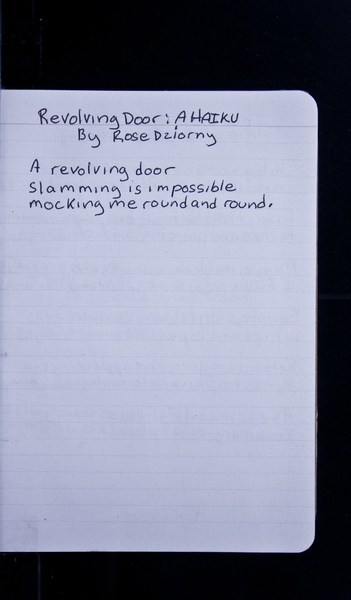 Revolving Door: A HAIKU
By Rose Dziorny
A revolving door
slamming is impossible
mocking me round and round.